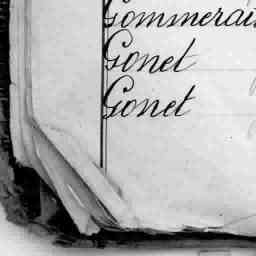 Gommerai
Gonet
Gonet